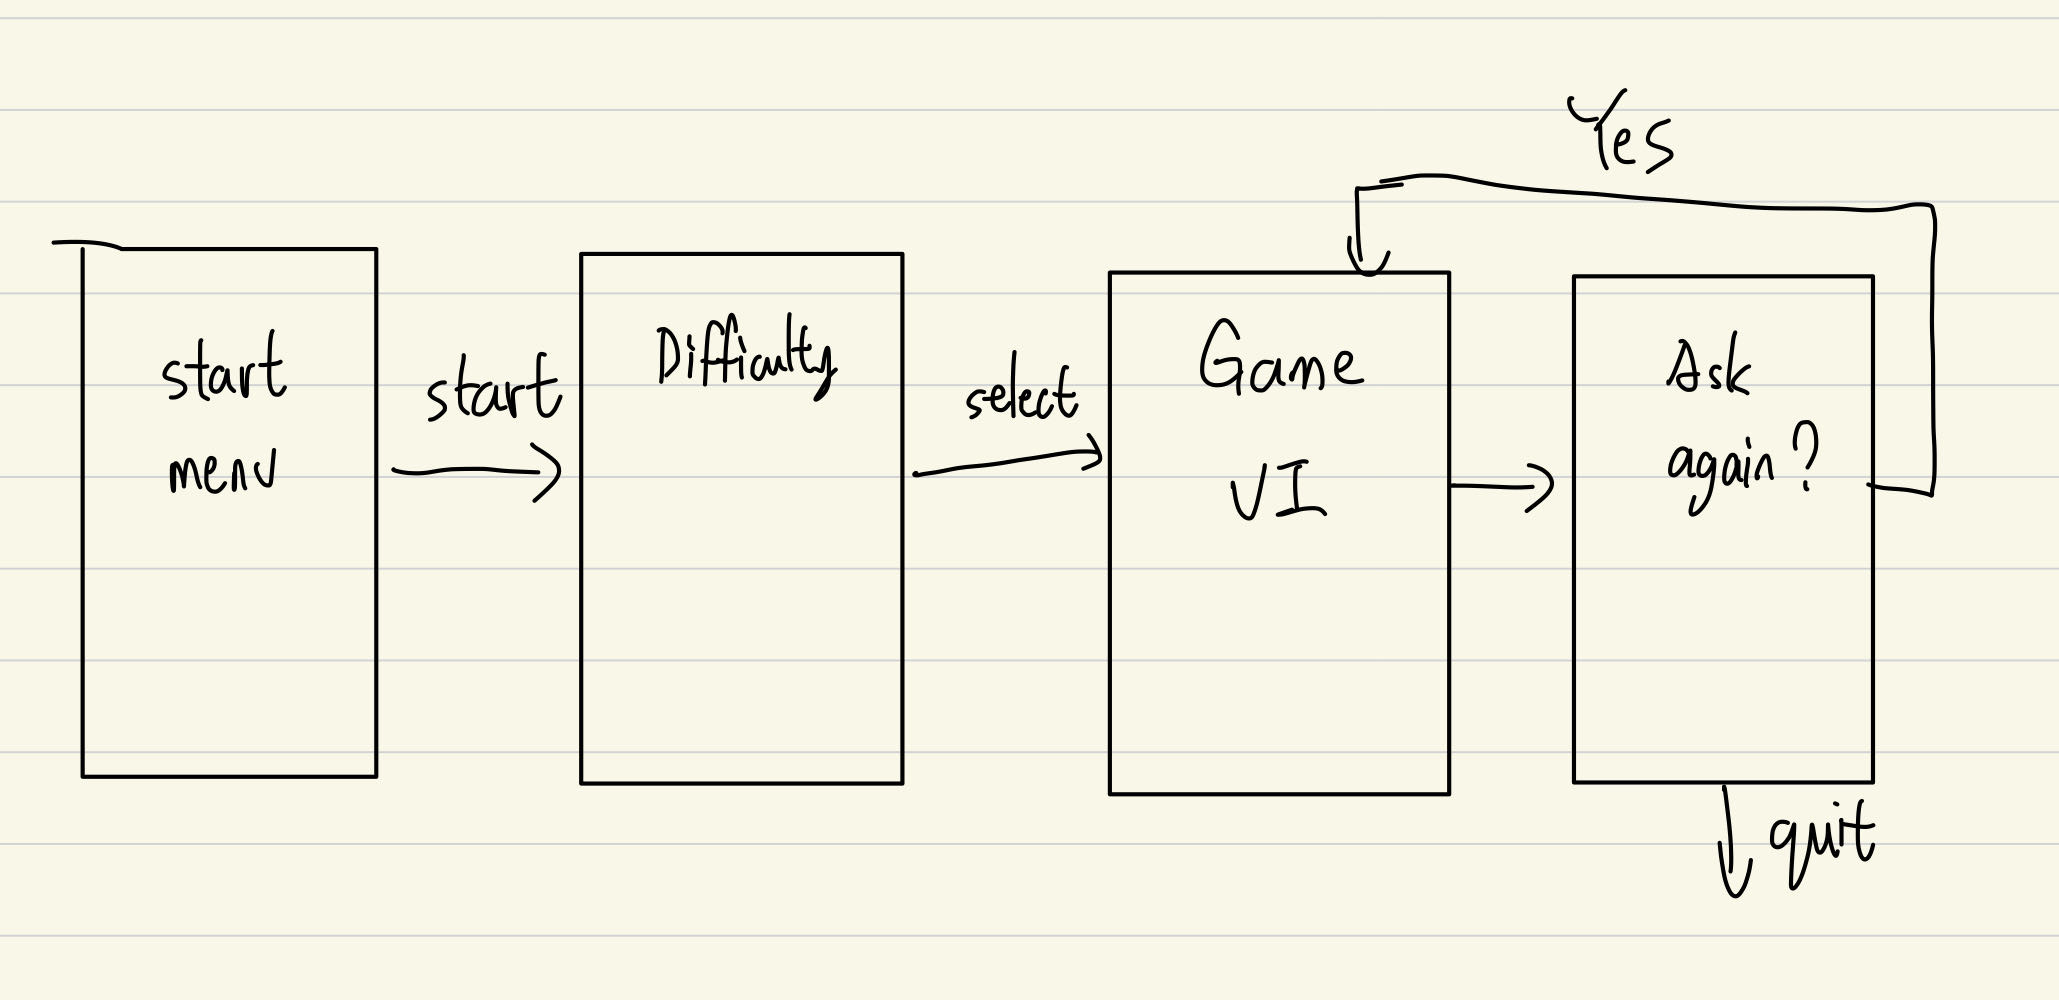 Yes
start
menu
start
Difficulty
select
Game
UI
Ask
again?
quit